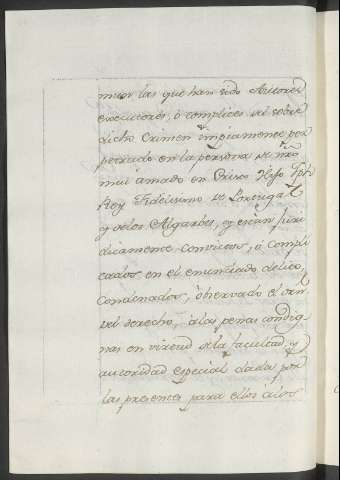 mun las que han sido Autores
executores, ó complices del sobre
dicho Crimen impiamente per
petrado en la persona de nrõ
mui amado en Christo Hijo Jph
Rey Fidelisimo de Portugal
y delos Algarbes, y esten juri
dicamente convictos, ó compli
cados en el enunciado delito,
Condenados, observado el orñ
del derecho, álas penas condig
nas en virtud dela facultad, y
autoridad especial dada por
las presentes para ellos álos